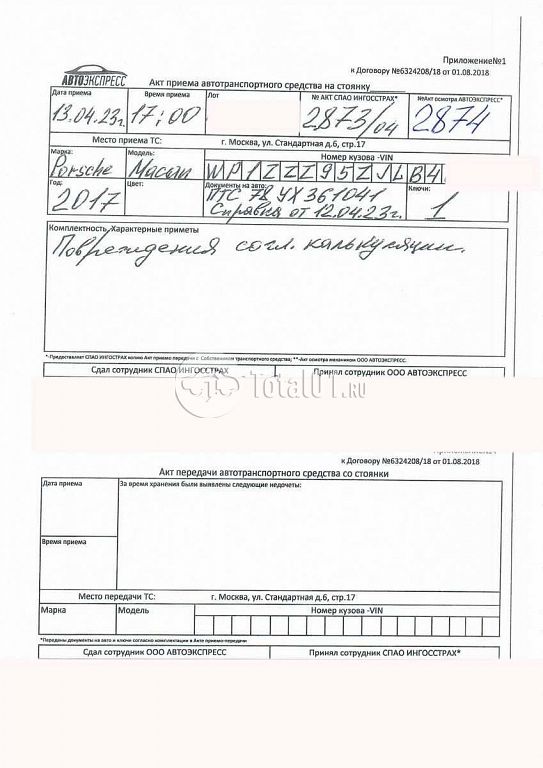 Приложение№1
к Договору №6324208/18 от 01.08.2018
АВТОЭКСПРЕСС
Акт приема автотранспортного средства на стоянку
Дата приема Время приема Лот № АКТ СПАО ИНГОССТРАХ* №Акт осмотра АВТОЭКСПРЕСС*
13.04.23г. 17:00 2873/04 2874
Место приема ТС: г. Москва, ул. Стандартная д.6, стр.17
Марка: Модель: Номер кузова -VIN
Porsche Macan WP1ZZZ95ZJLB4
Год: Цвет: Документы на авто: Ключи:
2017 ПТС 78 УХ 361041 1
Справка от 12.04.23г.
Комплектность, Характерные приметы
Повреждения согл. калькуляции.
*-Предоставляет СПАО ИНГОСТРАХ копию Акт приемо передачи с Собственником транспортного средства; **-Акт осмотра механиком ООО АВТОЭКСПРЕСС.
Сдал сотрудник СПАО ИНГОССТРАХ Принял сотрудник ООО АВТОЭКСПРЕСС
Total01.RU
к Договору №6324208/18 от 01.08.2018
Акт передачи автотранспортного средства со стоянки
Дата приема За время хранения были выявлены следующие недочеты:
Время приема
Место передачи ТС: г. Москва, ул. Стандартная д.6, стр.17
Марка Модель Номер кузова -VIN
*Переданы документы на авто и ключи согласно комплектации в Акте приемо-передачи
Сдал сотрудник ООО АВТОЭКСПРЕСС Принял сотрудник СПАО ИНГОССТРАХ*